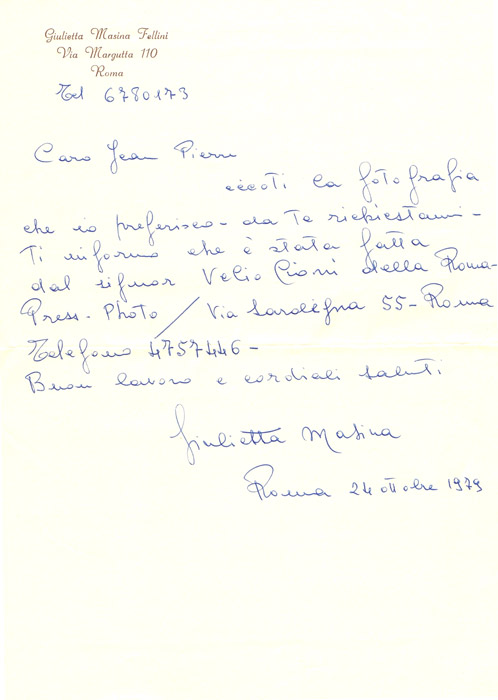 Giulietta Masina Fellini
Via Margutta 110
Roma
Tel 6780173
Caro Jean Pierre
eccoti la fotografia
che io preferisco - da Te richiestami -
Ti informo che è stata fatta
dal signor Velio Cioni della Roma-
Press - Photo / Via Sardegna 55 - Roma
Telefono 4757446 -
Buon lavoro e cordiali saluti
Giulietta Masina
Roma 24 ottobre 1979